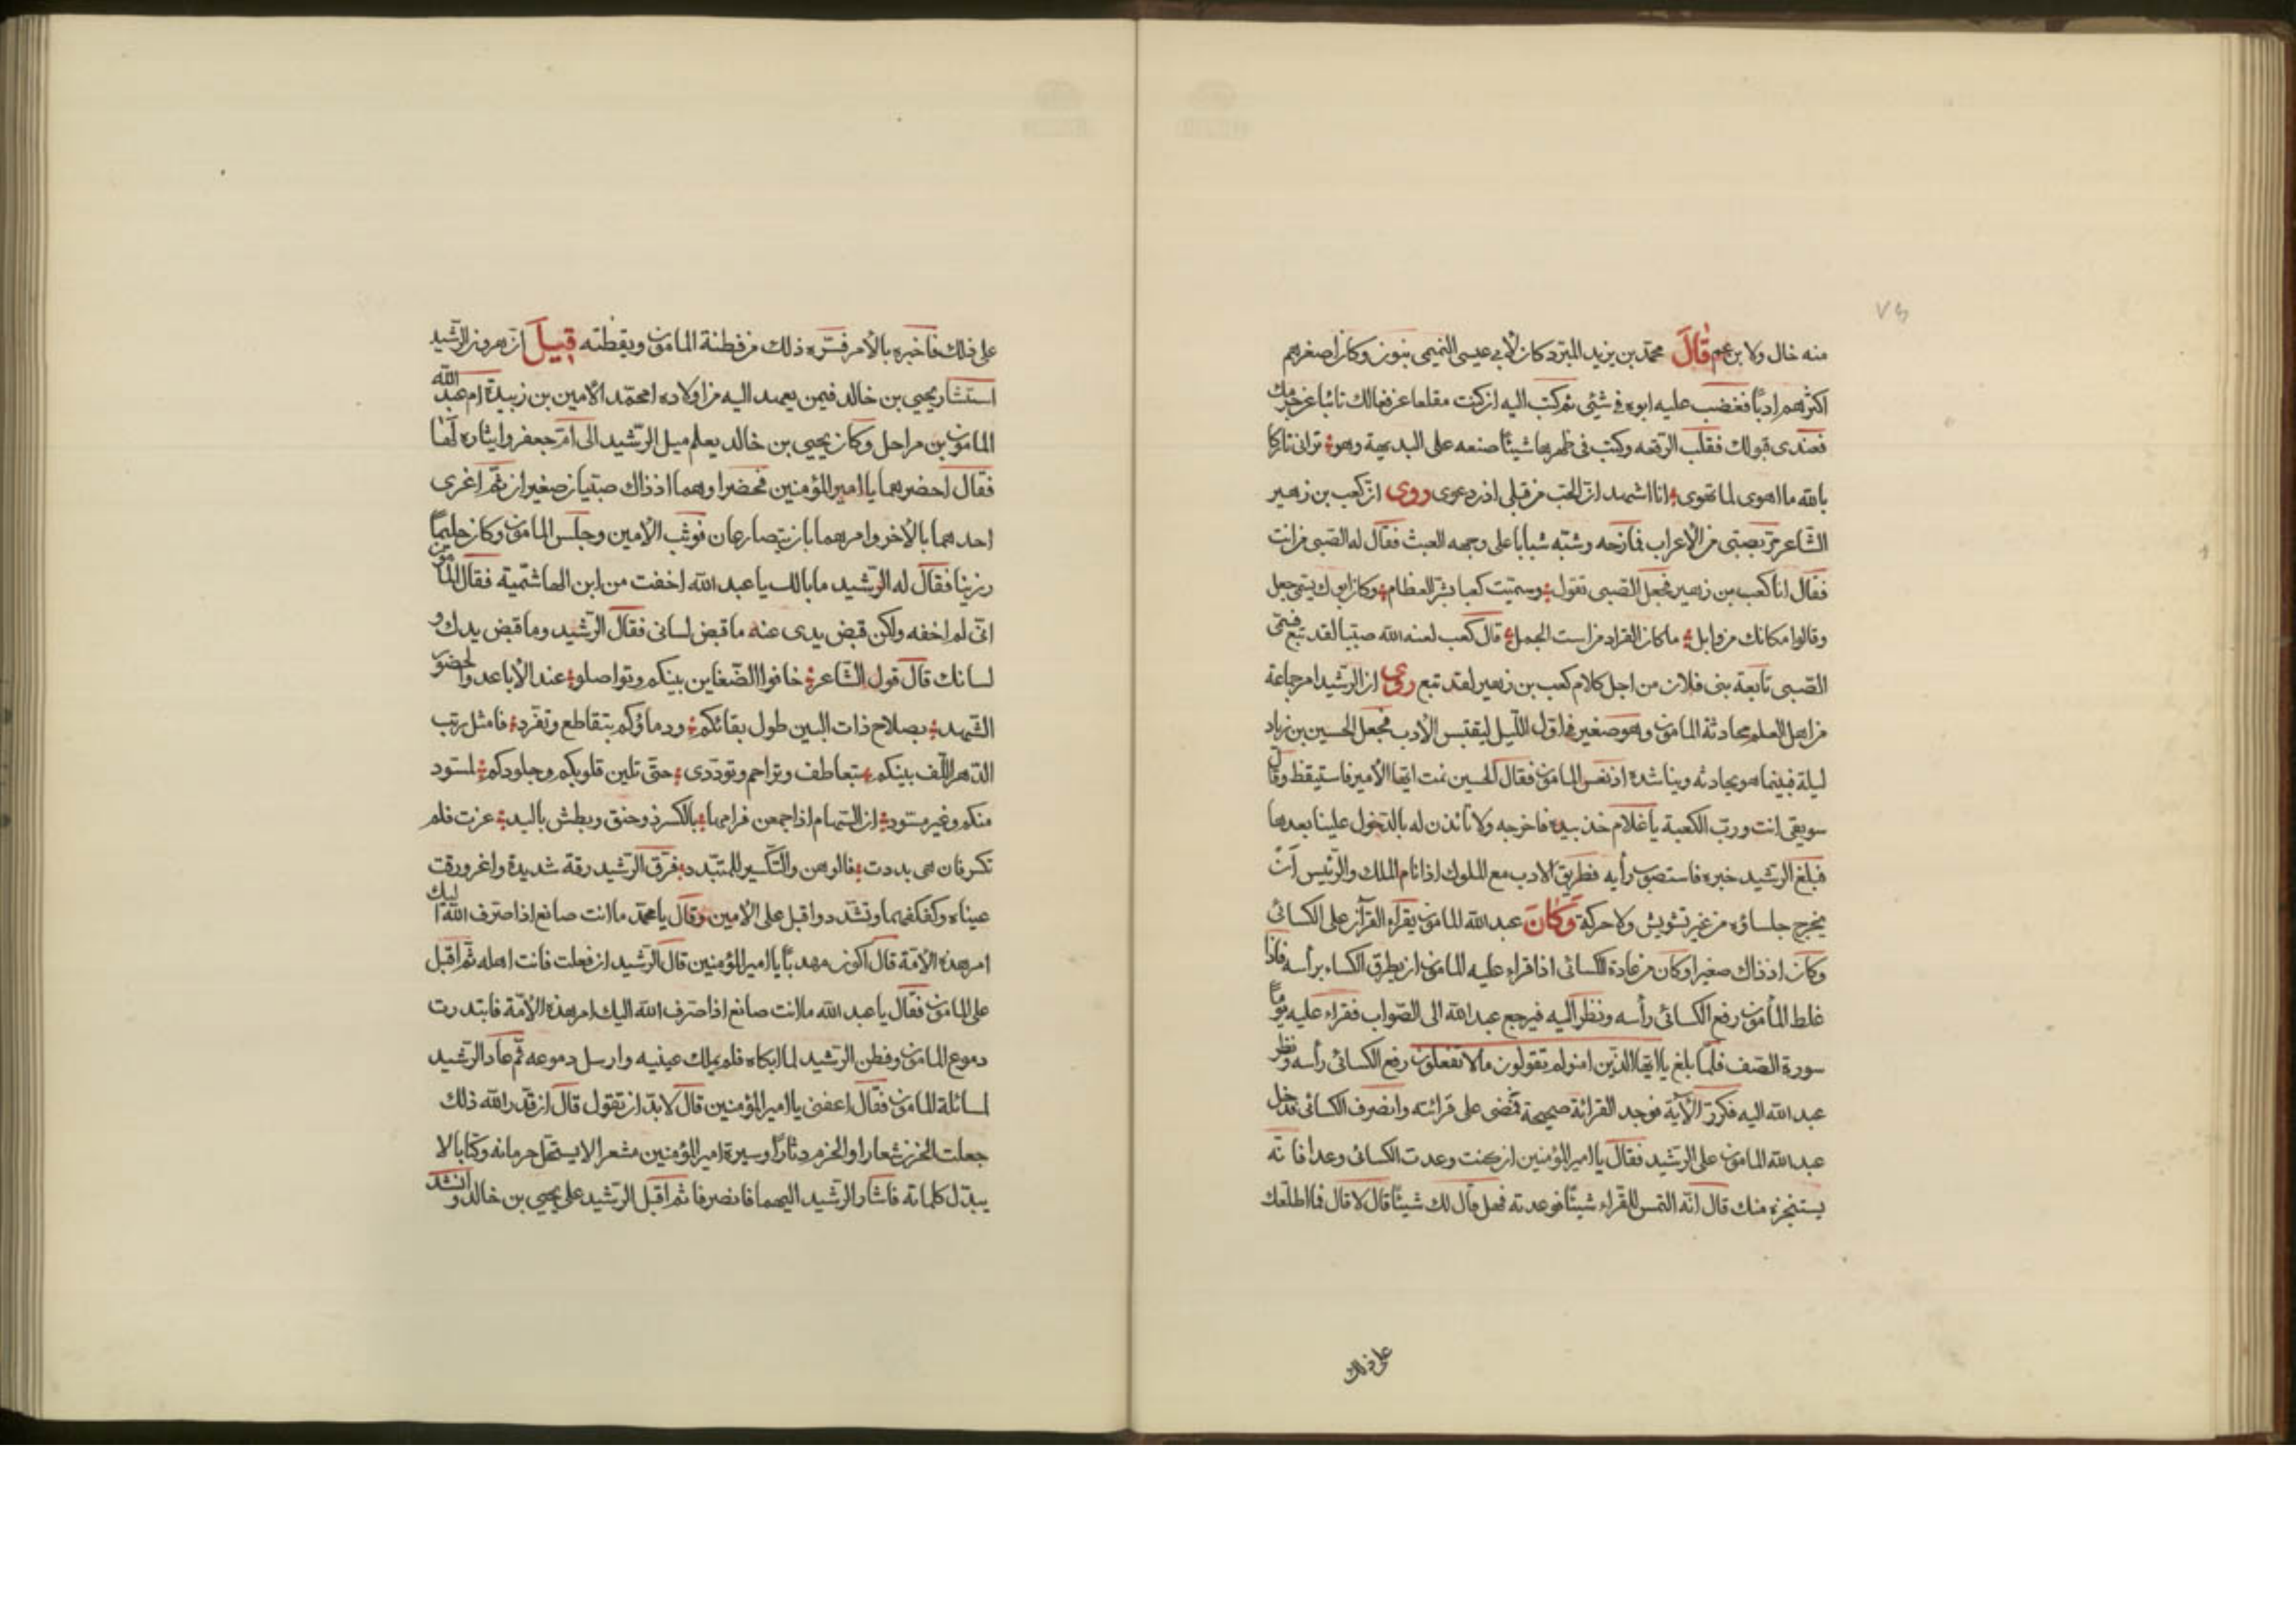 منه خال ولا بن عم قال محمد بن يزيد المبرد كان لأبي عيسى التميمي بنون وكان أصغرهم
اكثرهم ادبًا فغضب عليه ابوه في شئى ثم كتب اليه ان كنت مقلعا عن فعالك تائبا عن
فعندى قبولك فقلب الرقعه وكتب فى ظهرها شيئًا صنعه على البديهية وهو ترانى تاركا
بالله ما اهوى لما تهوى انا اشهد ان الحب من قبلى اذن دعوى روى ان كعب بن زهير
الشاعر مرّ بصبتى من الأعراب فمازحه وشبّه شبابا على وجهه العبث فقال له الصبى من انت
فقال انا كعب بن زهير فجعل الصبى تقول وسميت كعبا بشرّ العظام وكان ابوك يسمى جعل
وقالوا مكانك من وابل مكان القراد من است الجمل قال كعب لعنه الله صبتيا لقد تبع
الصبى تابعة بنى فلان من اجل كلام كعب بن زهير لقد تبع روى ان الرشيد امر جماعة
من اهل العلم بمحادثة المامون وهو صغير فى اوّل اللّيل ليقتبس الأدب فجعل الحسين بن زياد
ليلة فبينما هو يحادثه ويناشده اذ نعس المامون فقال الحسين نمت ايّها الأمير فاستيقظ وقال
سويقى انت وربّ الكعبة يا غلام خذ بيده فاخرجه ولا تأذن له بالدخول علينا بعدها
فبلغ الرشيد خبره فاستصوب رأيه فطريق الادب مع الملوك اذا نام الملك والرئيس ان
يخرج جلساؤه من غير تشويش ولا حركة وكان عبد الله المامون يقراء القرآن على الكسائى
وكان اذ ذاك صغيرا وكان من عادة الكسائى اذا قراء عليه المامون ان يطرق الكساء برأسه فاذا
غلط المأمون رفع الكسائى رأسه ونظر اليه فيرجع عبد الله الى الصّواب فقراء عليه يومًا
سورة الصف فلمّا بلغ يا ايّها الذين امنوا لم تقولون ما لا تفعلون رفع الكسائى رأسه ونظر
عبد الله اليه فكرر الآية فوجد القرائة صحيحة فمضى على قرائته وانصرف الكسائى فدخل
عبد الله المامون على الرشيد فقال يا امير المؤمنين ان كنت وعدت الكسائى وعدا فانّه
يستنجزه منك قال انّه التمس للقراء شيئًا فوعدته فهل قال لك شيئًا قال لا قال فما اطلعك
على ذلك
على ذلك فاخبره بالأمر فسرّه ذلك من فطنة المامون ويقظته قيل ان هرون الرّشيد
استشار يحيى بن خالد فيمن يعهد اليه من اولاده امحمّد الأمين بن زبيدة ام عبد الله
المامون بن مراحل وكان يحيى بن خالد يعلم ميل الرّشيد الى امّ جعفر وايثاره لها
فقال احضرهما يا امير المؤمنين فحضرا وهما اذ ذاك صبيّان صغيران ثمّ اغرى
احدهما بالأخر وامرهما بان يتصارعان فوثب الأمين وجلس المامون وكان حليمًا
رزينا فقال له الرّشيد ما بالك يا عبد الله اخفت من ابن الهاشميّة فقال المامون
انّى لم اخفه ولكن قبض يدى عنه ما قبض لسانى فقال الرّشيد وما قبض يدك و
لسانك قال قول الشّاعر خافوا الضّغاين بينكم وتواصلوا عند الأباعد والحضور
الشّهد بصلاح ذات البين طول بقائكم ودماؤكم بتقاطع وتفرّد فلمثل ريب
الدّهر الّف بينكم بتعاطف وتراحم وتودّدى حتّى تلين قلوبكم وجلودكم لمسود
منكم وغير مسّود ان السّهام اذا جمعن فرامها بالكسر ذو حنق وبطش باليد عزت فلم
تكسر فان هى بددت فالوهن والتّكسير للمتبّدد فرّق الرّشيد رقة شديدة واغرورقت
عيناه وكفكفهما وتشدّد واقبل على الأمين وقال يا محمّد ما انت صانع اذا صرف الله اليك
امر هذه الأمّة قال اكون مهدبًّا يا امير المؤمنين قال الرّشيد ان فعلت فانت اهله ثمّ اقبل
على المامون فقال يا عبد الله ما انت صانع اذا صرف الله اليك امر هذه الأمّة فابتدرت
دموع المامون وفطن الرّشيد لما ابكاه فلم يملك عينيه وارسل دموعه ثمّ عاد الرّشيد
لمسائلة المامون فقال اعفنى يا امير المؤمنين قال لا بدّ ان تقول قال ان قدّر الله ذلك
جعلت الحزن شعارا والحزم دثارًا وسيرة امير المؤمنين مشعرا لا يستحّل حرمانه وكتابا لا
يبدّل كلماته فاشار الرّشيد اليهما فانصرفا ثم اقبل الرّشيد على يحيى بن خالد وانشد